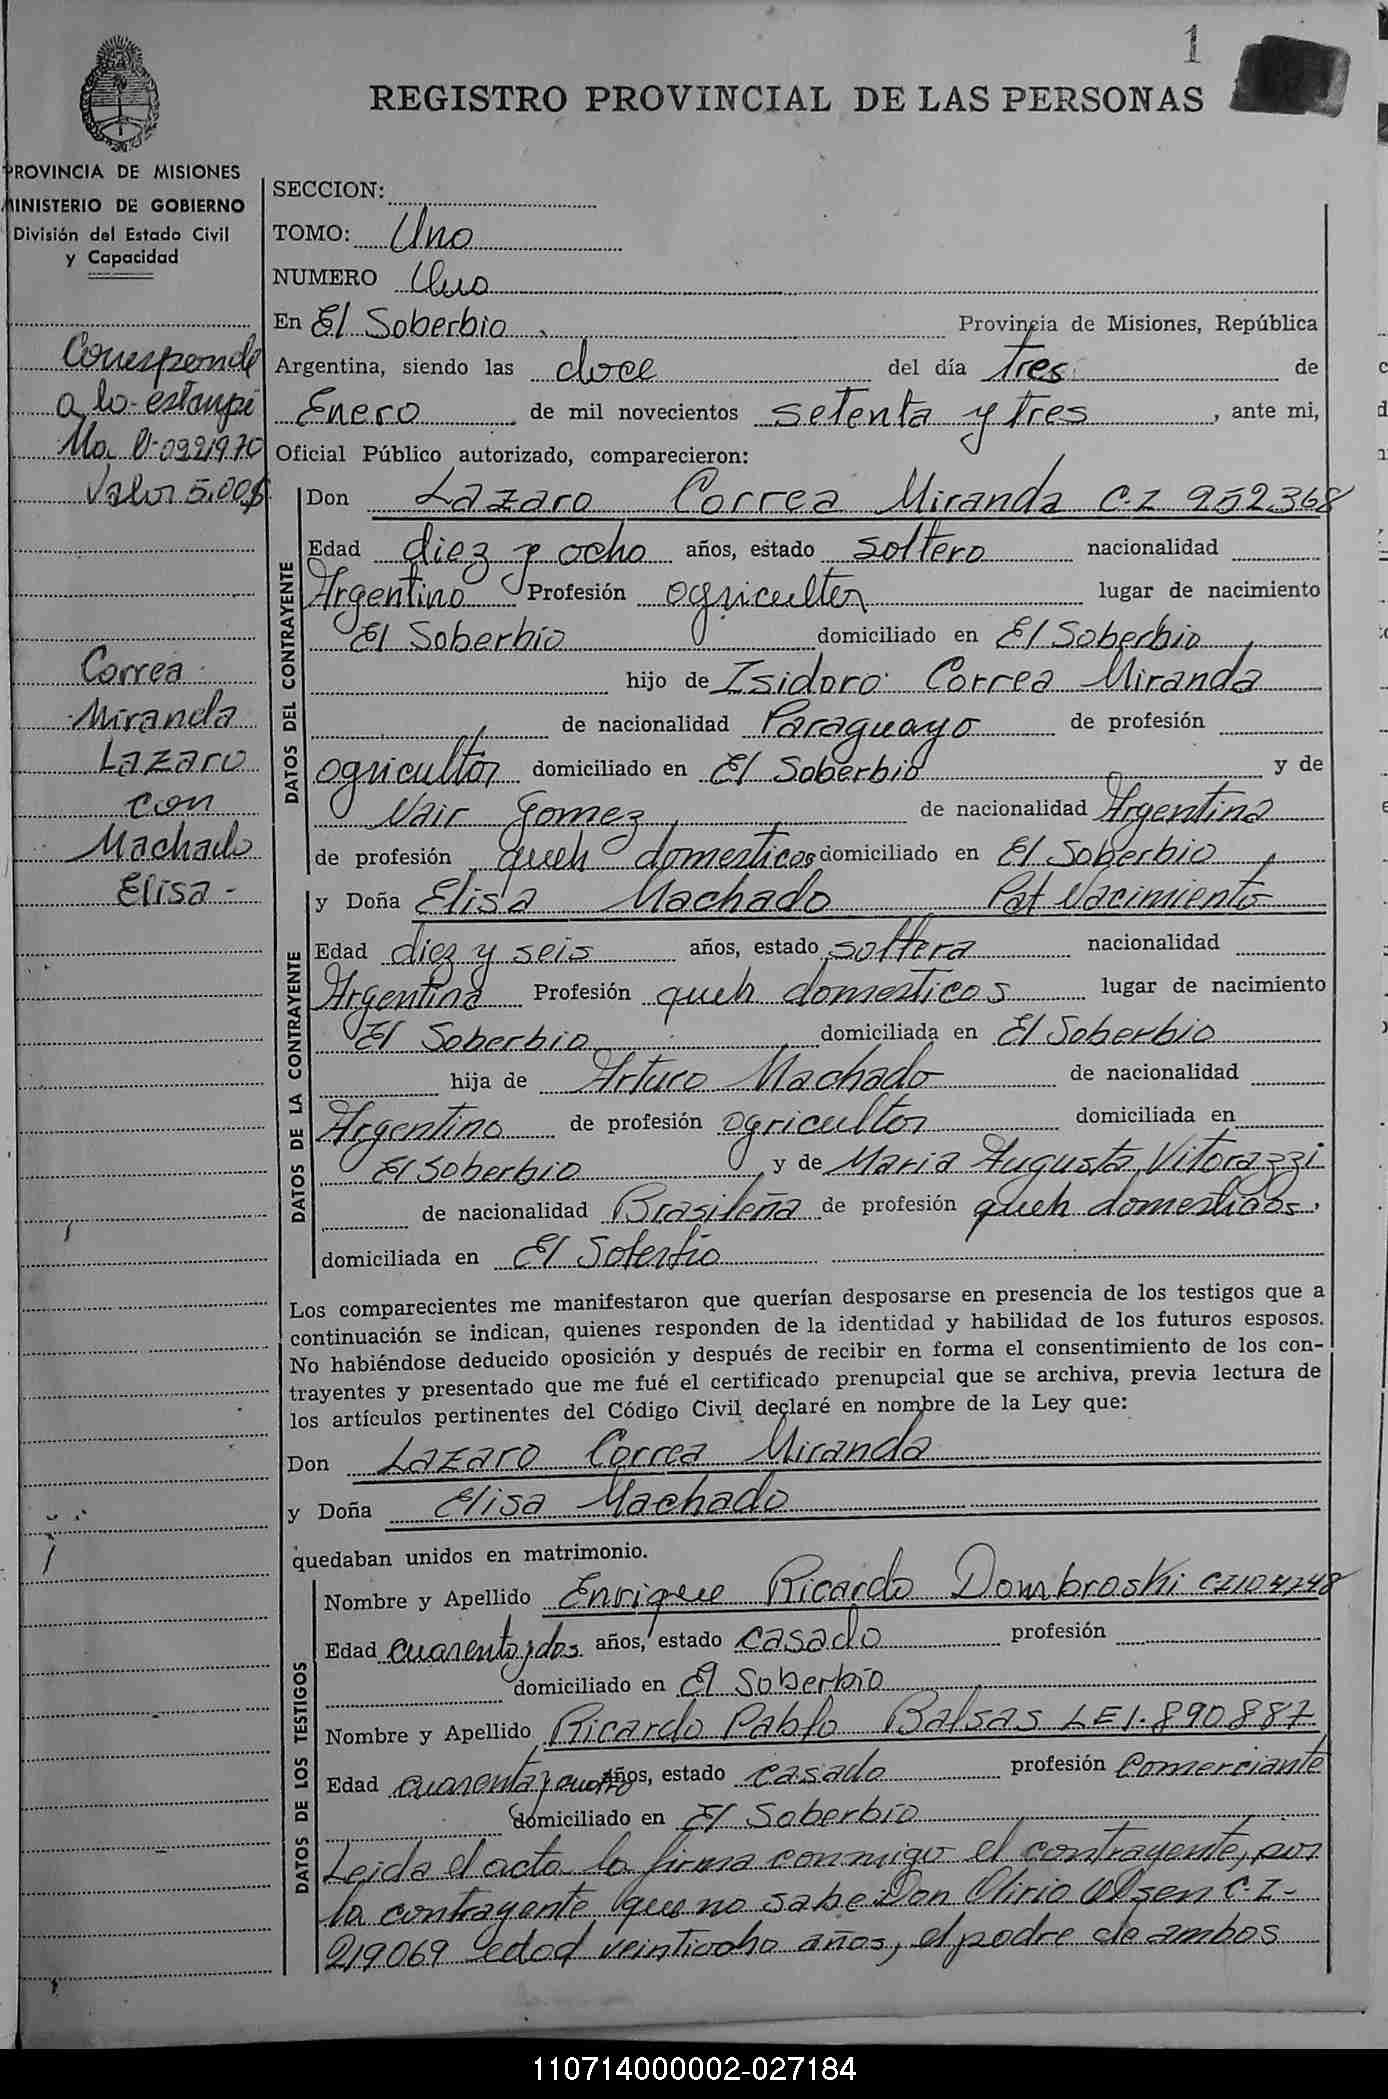 1
REGISTRO PROVINCIAL DE LAS PERSONAS
PROVINCIA DE MISIONES
MINISTERIO DE GOBIERNO
División del Estado Civil
y Capacidad
Corresponde
a la estampi
lla 0921970
Valor 5,00$
Correa
Miranda
Lazaro
con
Machado
Elisa -
SECCION:
TOMO: Uno
NUMERO Uno
En El Soberbio Provincia de Misiones, República
Argentina, siendo las doce del día tres de
Enero de mil novecientos setenta y tres, ante mi,
Oficial Público autorizado, comparecieron:
DATOS DEL CONTRAYENTE
Don Lazaro Correa Miranda C.I 952368
Edad diez y ocho años, estado soltero nacionalidad
Argentino Profesión agricultor lugar de nacimiento
El Soberbio domiciliado en El Soberbio
hijo de Isidoro Correa Miranda
de nacionalidad Paraguayo de profesión
agricultor domiciliado en El Soberbio y de
Nair Gomez de nacionalidad Argentina
de profesión queh domesticos domiciliado en El Soberbio
DATOS DE LA CONTRAYENTE
y Doña Elisa Machado Pat Nacimiento
Edad diez y seis años, estado soltera nacionalidad
Argentina Profesión queh domesticos lugar de nacimiento
El Soberbio domiciliada en El Soberbio
hija de Arturo Machado de nacionalidad
Argentino de profesión agricultor domiciliada en
El Soberbio y de Maria Augusta Vitorazzi
de nacionalidad Brasileña de profesión queh domesticos,
domiciliada en El Soberbio
Los comparecientes me manifestaron que querían desposarse en presencia de los testigos que a
continuación se indican, quienes responden de la identidad y habilidad de los futuros esposos.
No habiéndose deducido oposición y después de recibir en forma el consentimiento de los con-
trayentes y presentado que me fué el certificado prenupcial que se archiva, previa lectura de
los artículos pertinentes del Código Civil declaré en nombre de la Ley que:
Don Lazaro Correa Miranda
y Doña Elisa Machado
quedaban unidos en matrimonio.
DATOS DE LOS TESTIGOS
Nombre y Apellido Enrique Ricardo Dombroski CI104748
Edad cuarenta y dos años, estado casado profesión
domiciliado en El Soberbio
Nombre y Apellido Ricardo Pablo Balsas LE 1.890.887
Edad cuarenta y cuatro años, estado casado profesión Comerciante
domiciliado en El Soberbio
Leida el acta la firma conmigo el contrayente, por
la contrayente que no sabe Don Olirio Olsen C.I-
219069 edad veintiocho años, el padre de ambos
110714000002-027184